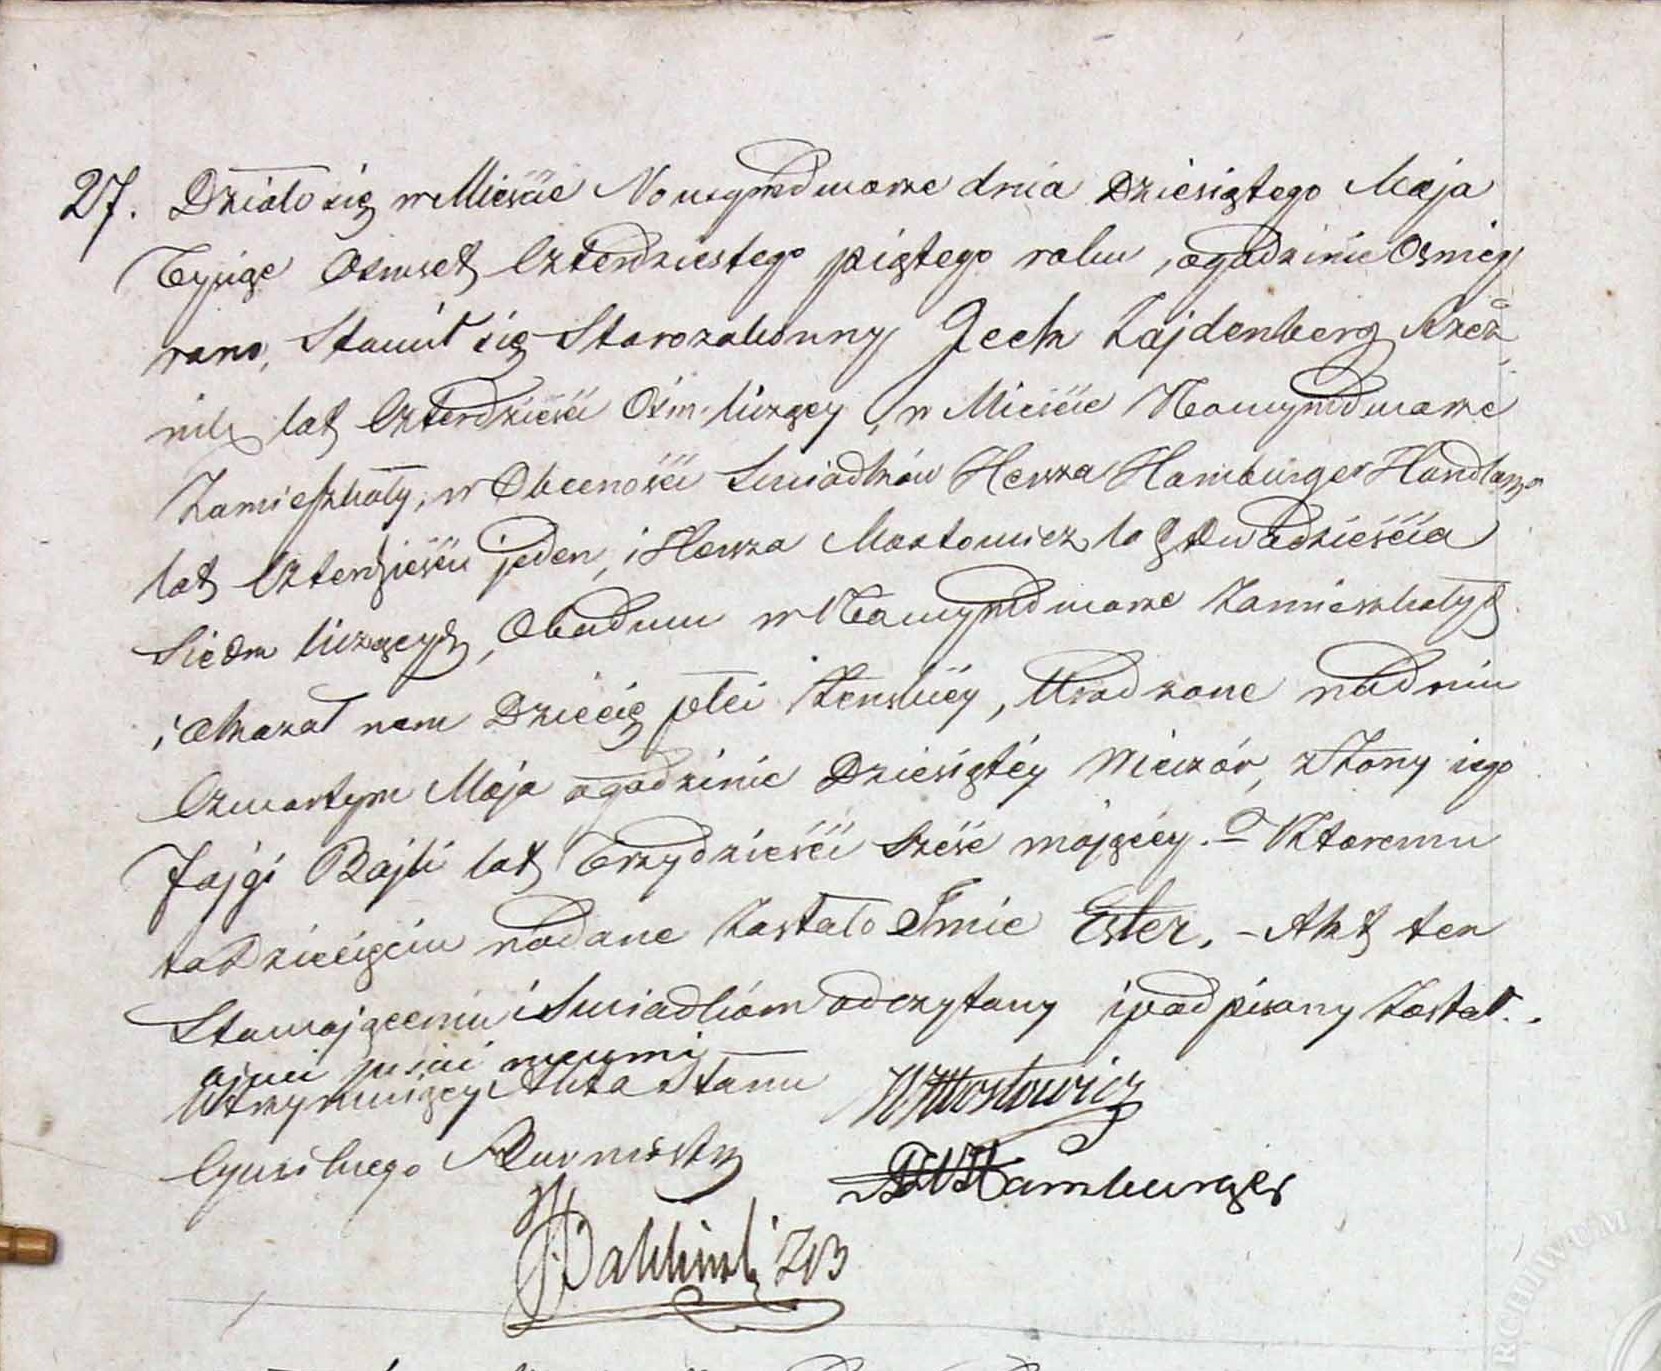 27. Działo się w Mieście Nowymdworze dnia Dziesiątego Maja
Tysiąc Osmset Czterdziestego piątego roku, o godzinie Osmey
rano, Stawił się Starozakonny Jcek Zajdenberg Rzeź„
nik lat Czterdzieści Ośm liczący, w Mieście Nowymdworze
Zamieszkały, w Obecności Swiadków Hersza Hamburger Handlarza
lat Czterdzieści jeden, i Hersza Mostowicz lat Dwadzieścia
Siedm liczących, Obudwu w Nowymdworze zamieszkałych
i Okazał nam Dziecię płci Żeńskiey, Urodzone na dniu
Czwartym Maja o godzinie Dziesiątéy Wieczór, z Żony iego
Fajgi Rajli lat Trzydzieści Sześć maiącéy. – Któremu
to Dziecięciu nadane Zostało Jmie Ester. – Akt ten
Stawaiącemu i Swiadkom odczytany i podpisany Został.
oyciec pisać nieumie
Utrzymuiący Akta Stanu HMostowicz
Cywilnego Burmistrz Hamburger
ZB
ARCHIWUM